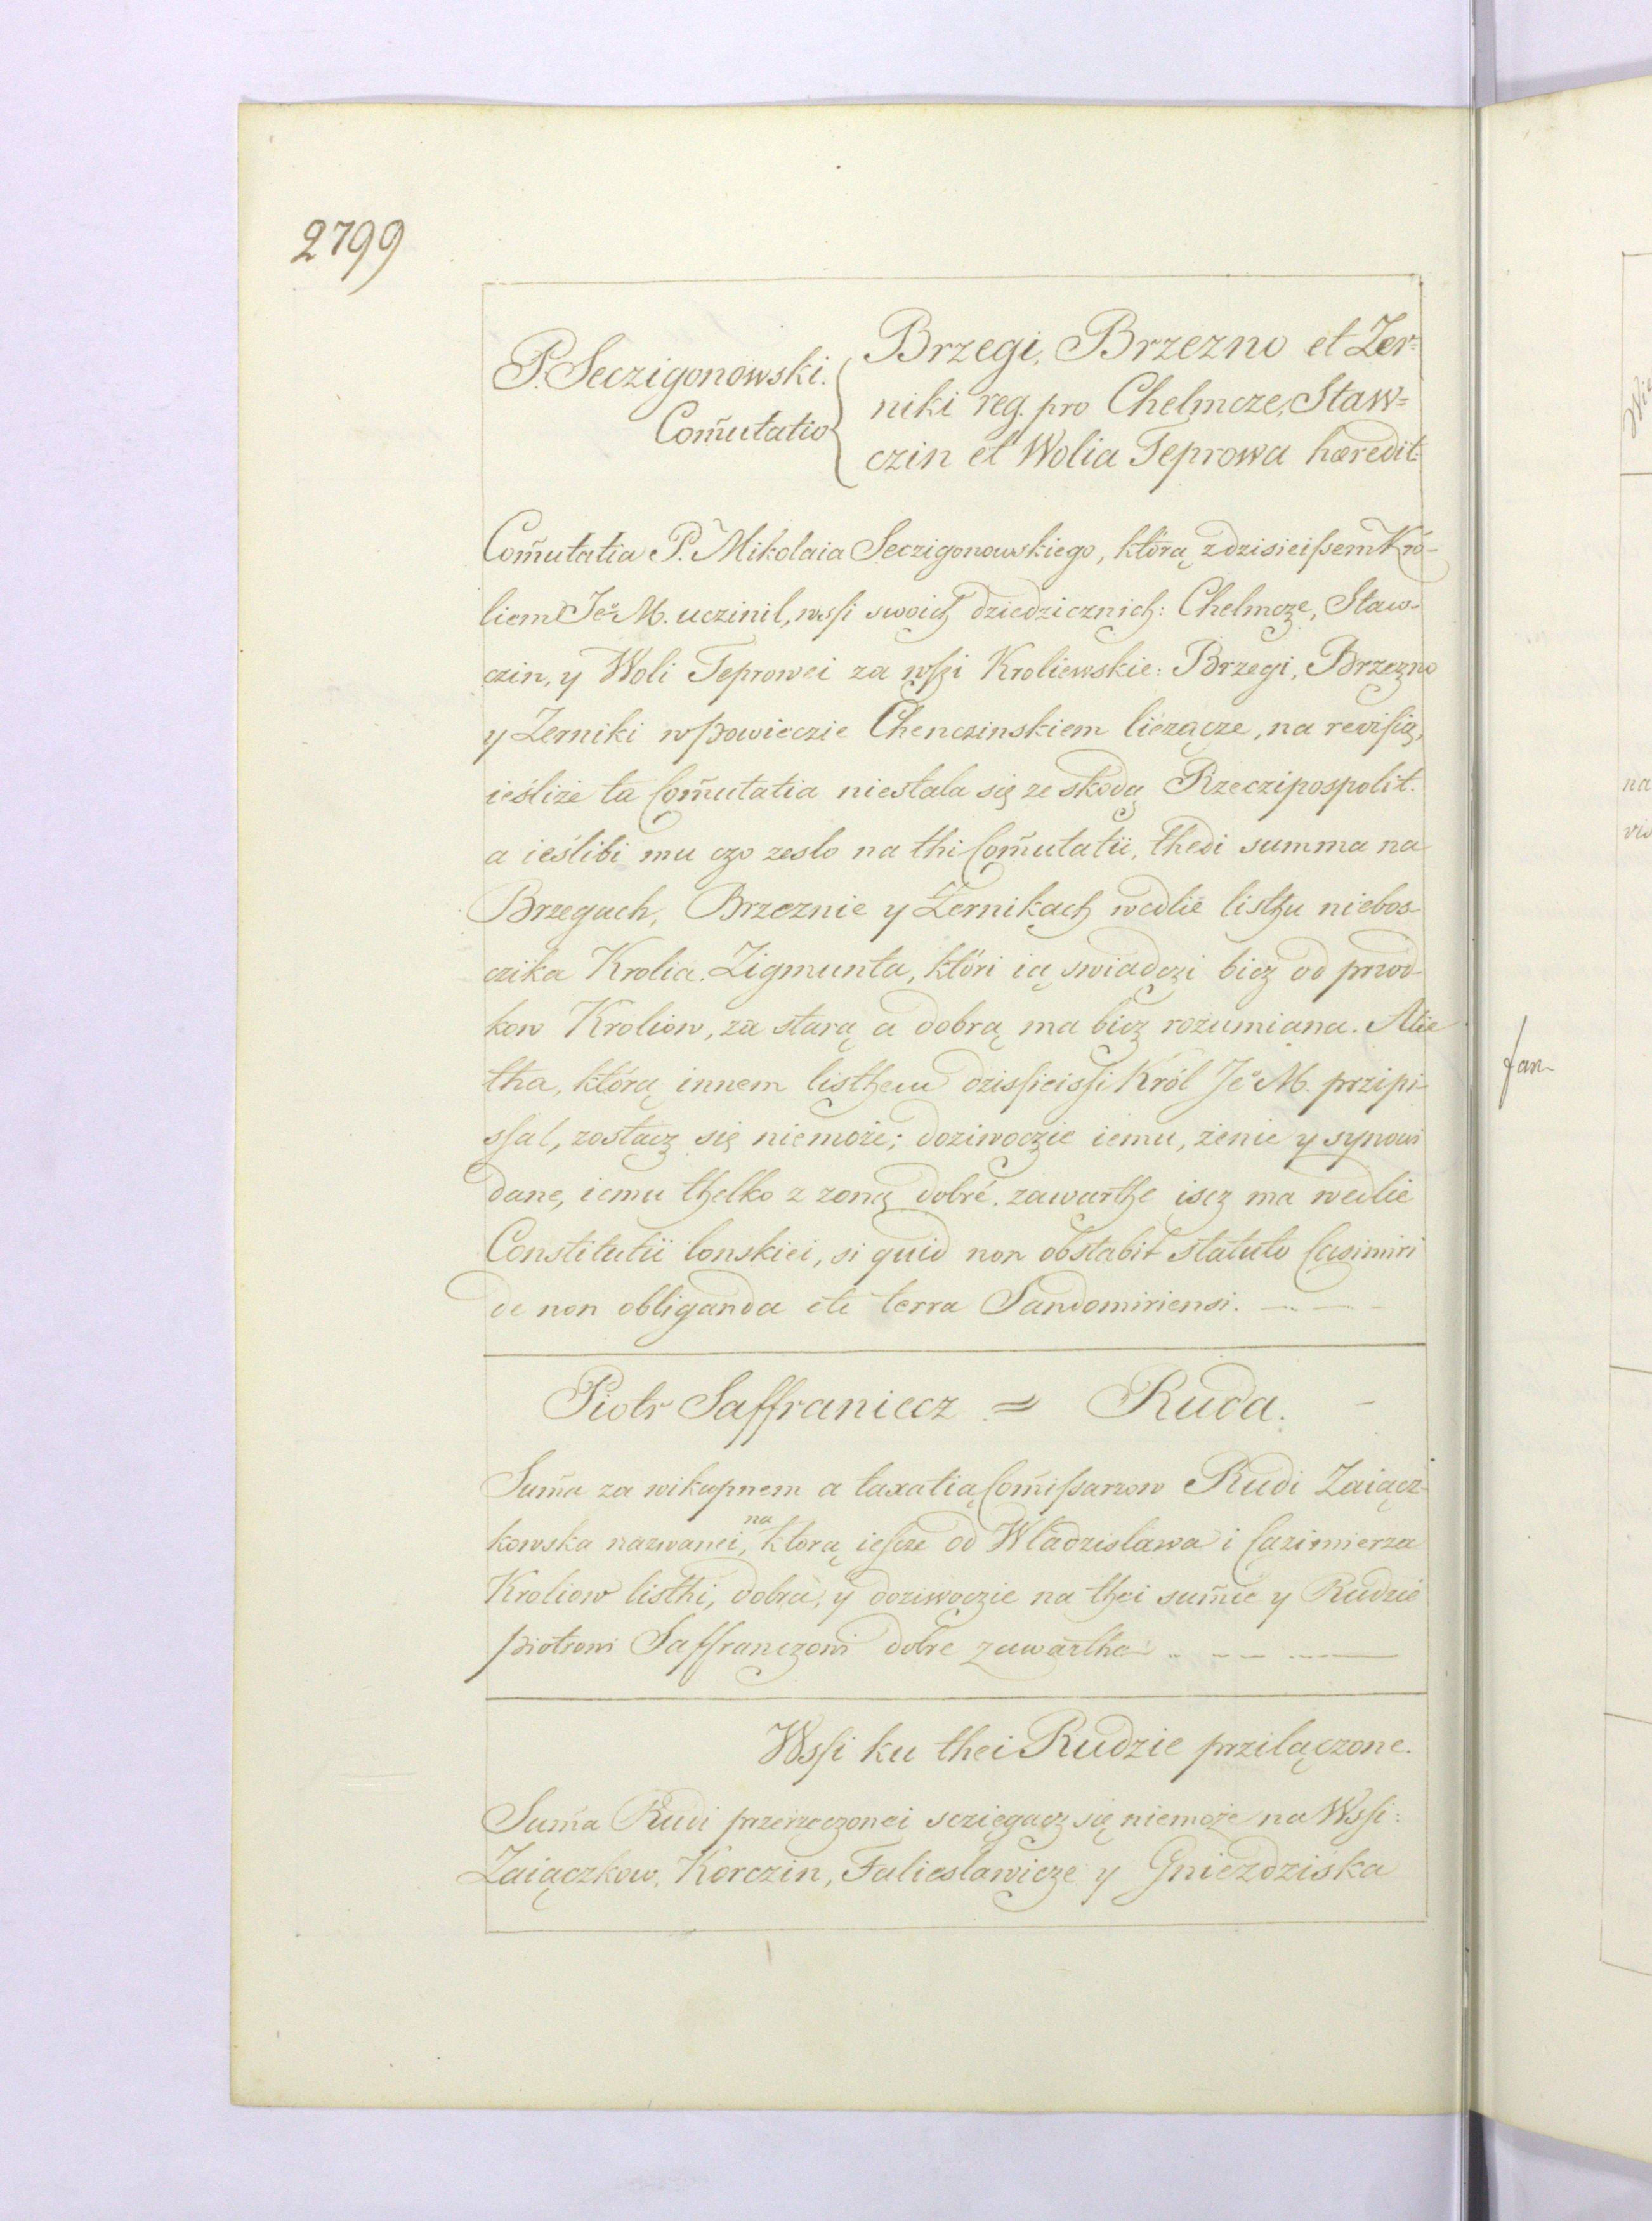 2799
P. Seczigonowski. Brzegi, Brzezno et Zer=
Com̃utatio niki reg. pro Chelmcze, Staw=
czin et Wolia Teprowa hæredit:
Com̃utatia P. Mikolaia Seczigonowskiego, ktorą z dzisieiſsem Kró-
liem Je° M. uczinil, wsſi swoich dziedzicznich: Chelmcze, Staw-
czin, y Woli Teprowei za wſsi Kroliewskie: Brzegi, Brzezno
y Zerniki w powieczie Chenczinskiem liezącze, na reviſią,
ieśliże ta Com̃utatia niestala się ze skodą Rzeczipospolit.
a ieślibi mu czo zeslo na thi Com̃utatii, thedi summa na
Brzegach, Brzeznie y Żernikach wedlie listhu niebos-
czika Krolia Zigmunta, któri ią swiadczi bicz od przod-
kow Kroliow, za starą a dobrą ma bicz rozumiana. Alie
tha, którą innem listhem dzisſieisſi Król Je° M. przipi-
sſal, zostacz się niemoże; doziwoczie iemu, żenie y synowi
dane, iemu thelko z zoną dobré. zawarthe iscz ma wedlie
Constitutii lonskiei, si quid non obstabit statuto Casimiri
de non obliganda etc terra Sandomiriensi.
Piotr Saffraniecz = Ruda.
Sum̃a za wikupnem a taxatią Com̃iſsarzow Rudi Zaiącz-
na
kowska nazwanei, ktorą ieſcze od Wladzislawa i Cazimierza
Kroliow listhi, dobra, y doziwoczie na thei sum̃ie y Rudzie
Piotrowi Saffranczowi dobre zawartha
Wsſi ku thei Rudzie przilączone.
Sum̃a Rudi przerzeczonei scziegacz się niemoże na Wsſi:
Zaiączkow, Korczin, Falieslawicze y Gniezdziska
fan-